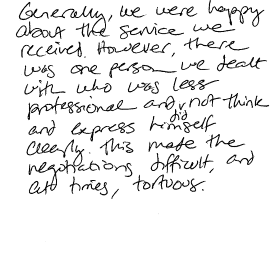 Generally, we were happy
about the service we
received. However, there
was one person we dealt
with who was less
professional and did not think
and express himself
clearly. This made the
negotiations difficult, and
at times, tortuous.